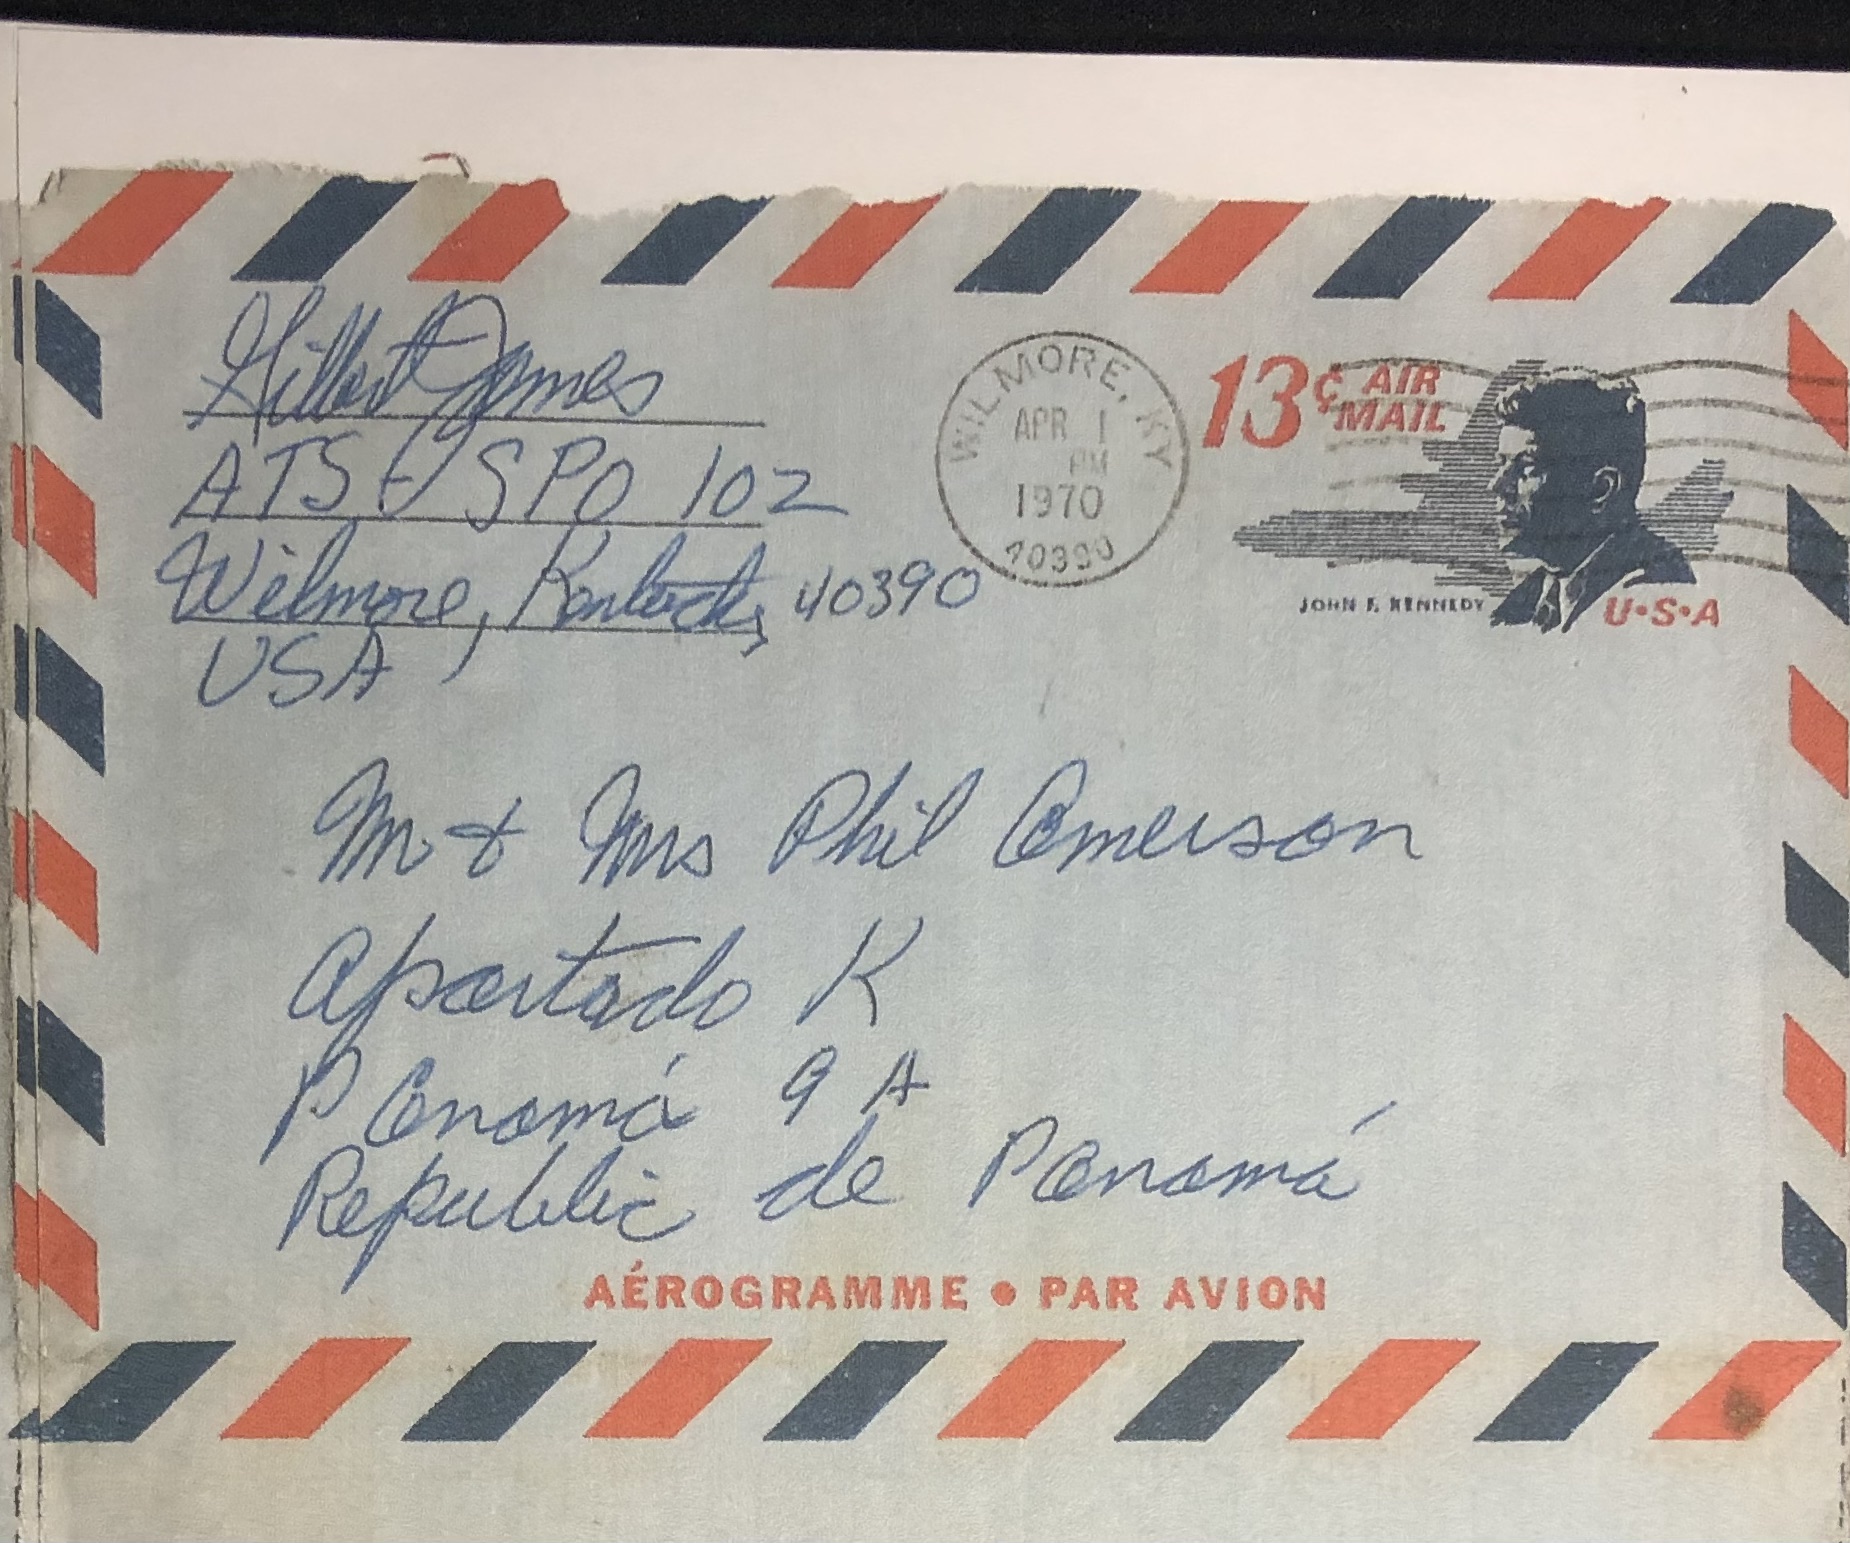 Gilbert James
ATS SPO 102
Wilmore, Kentucky, 40390
USA
WILMORE, KY
APR 1
PM
1970
40390
13¢ AIR
MAIL
JOHN F. KENNEDY
U·S·A
M & Mrs Phil Amerson
Apartado K
Panamá 9 A
Republic de Panamá
AÉROGRAMME • PAR AVION